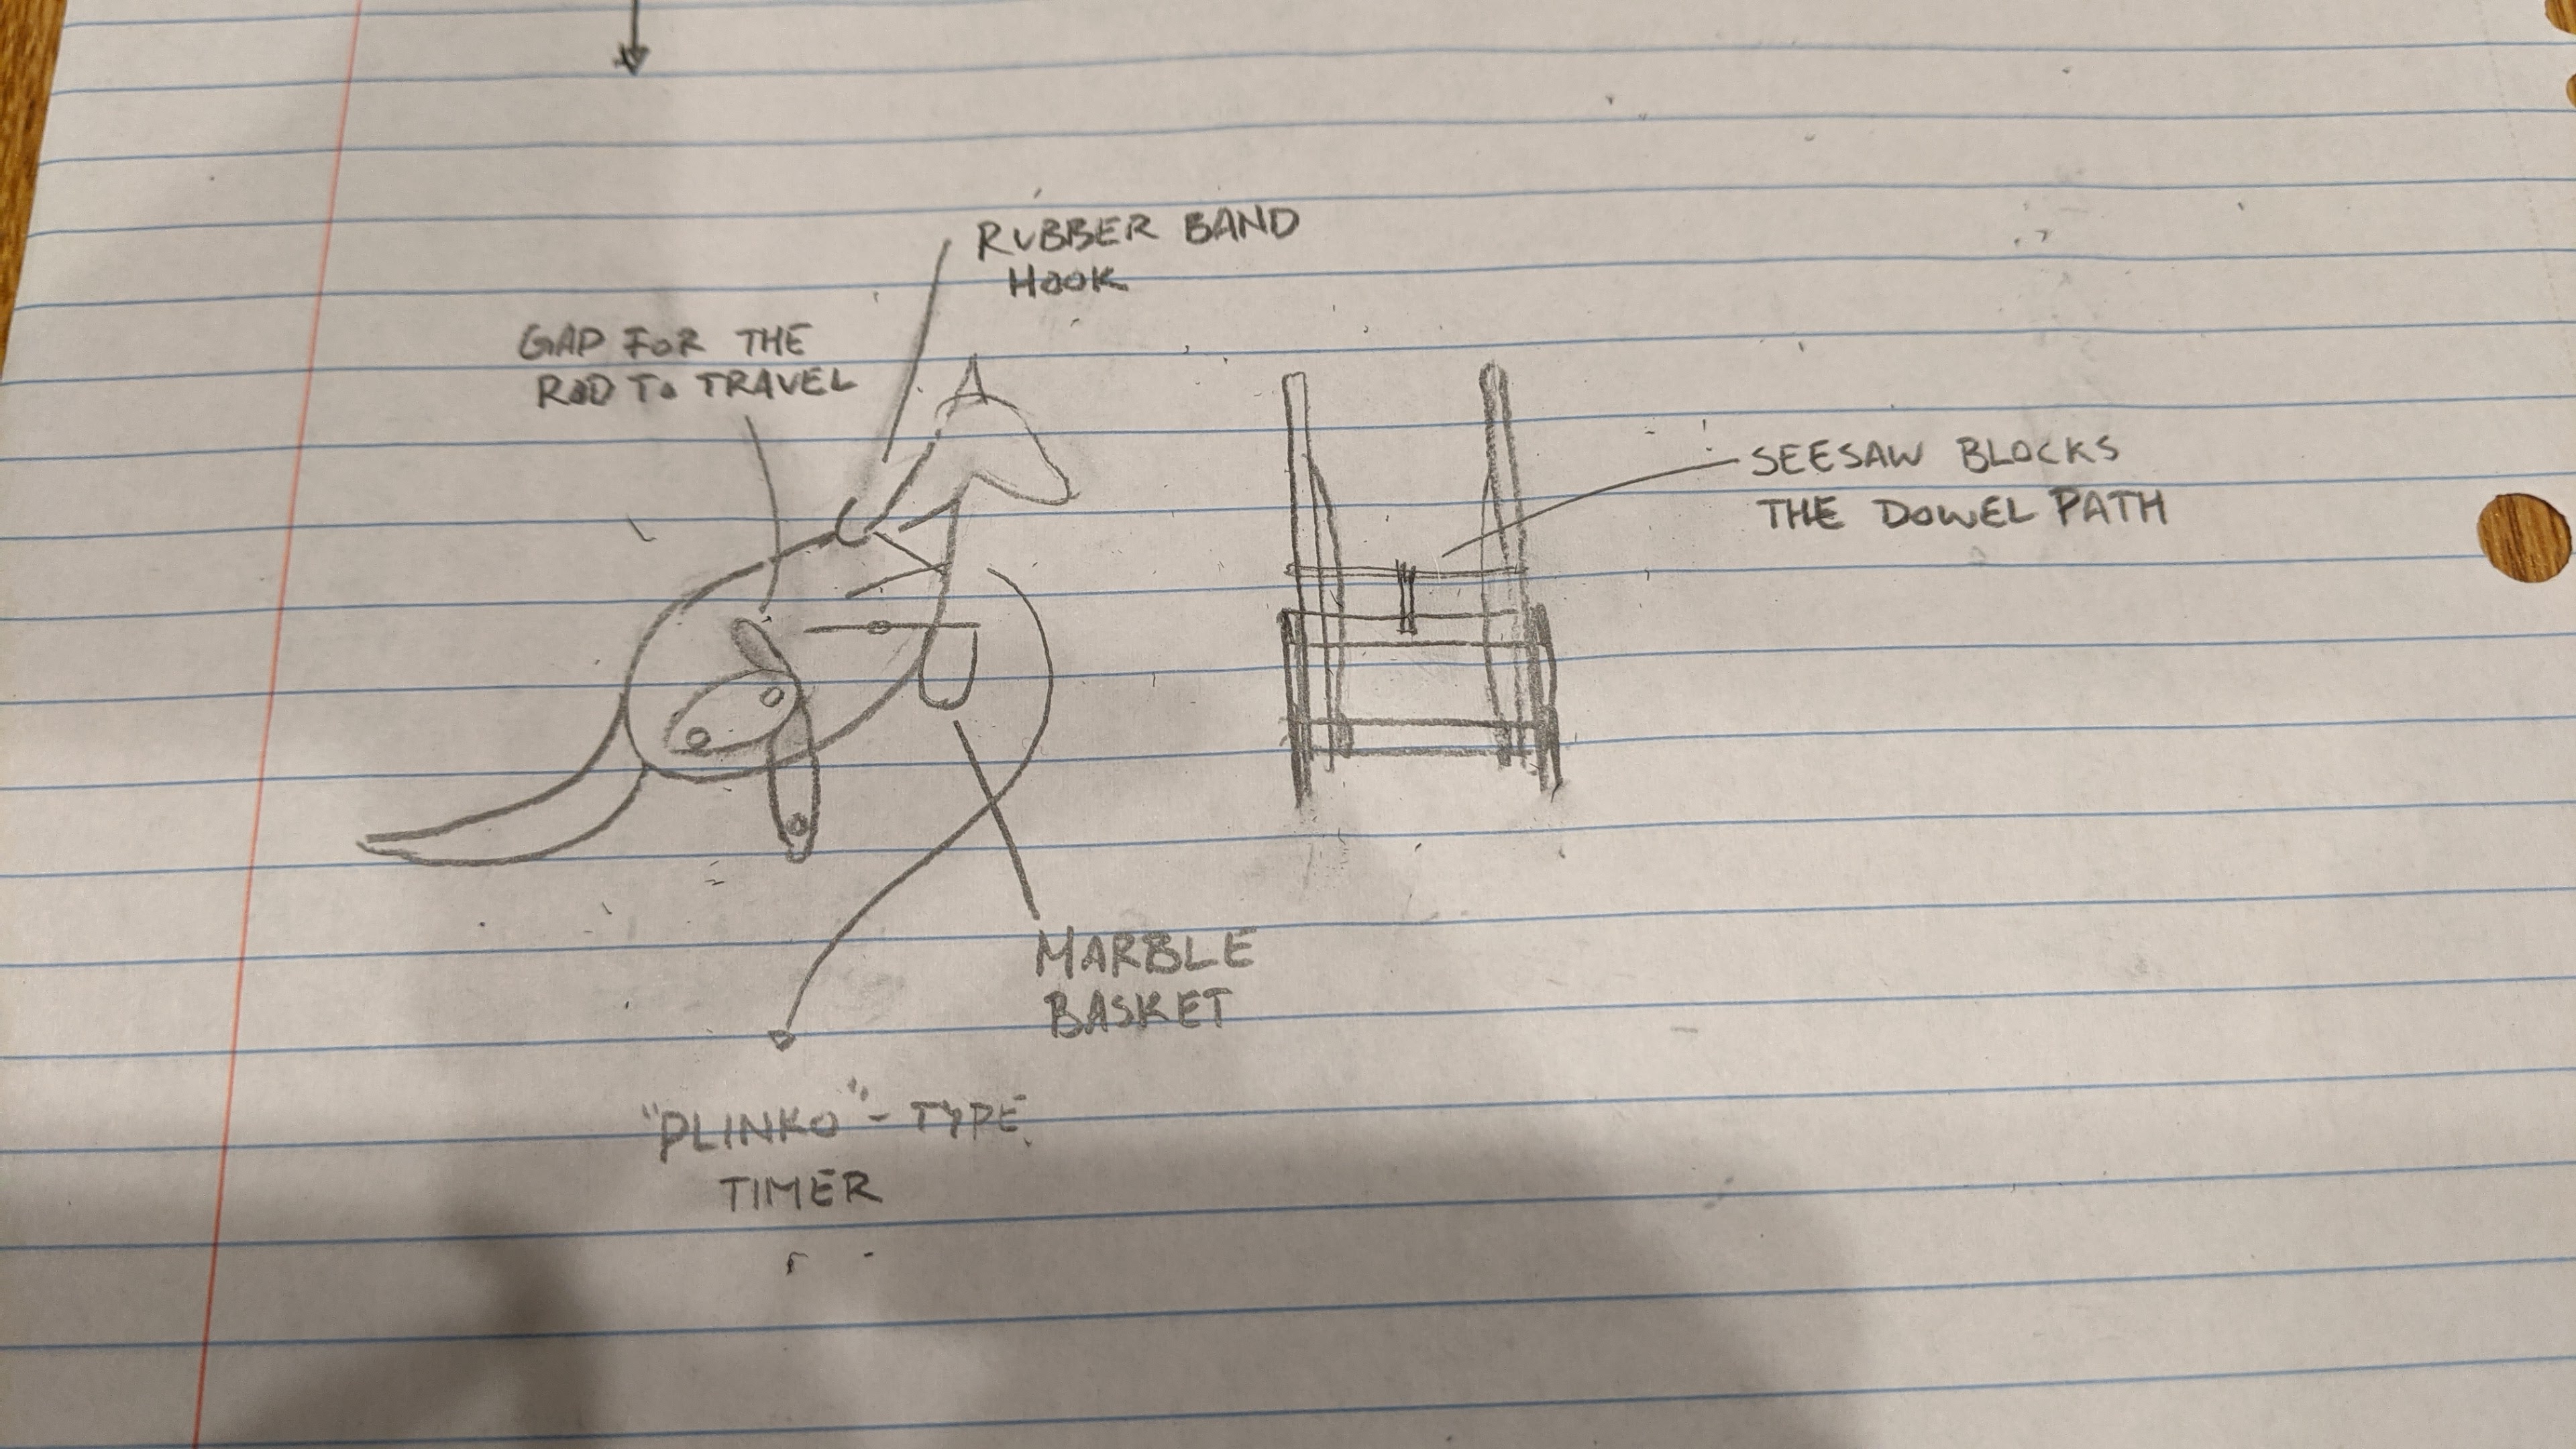 RUBBER BAND
HOOK
GAP FOR THE
ROD TO TRAVEL
SEESAW BLOCKS
THE DOWEL PATH
MARBLE
BASKET
"PLINKO"-TYPE
TIMER